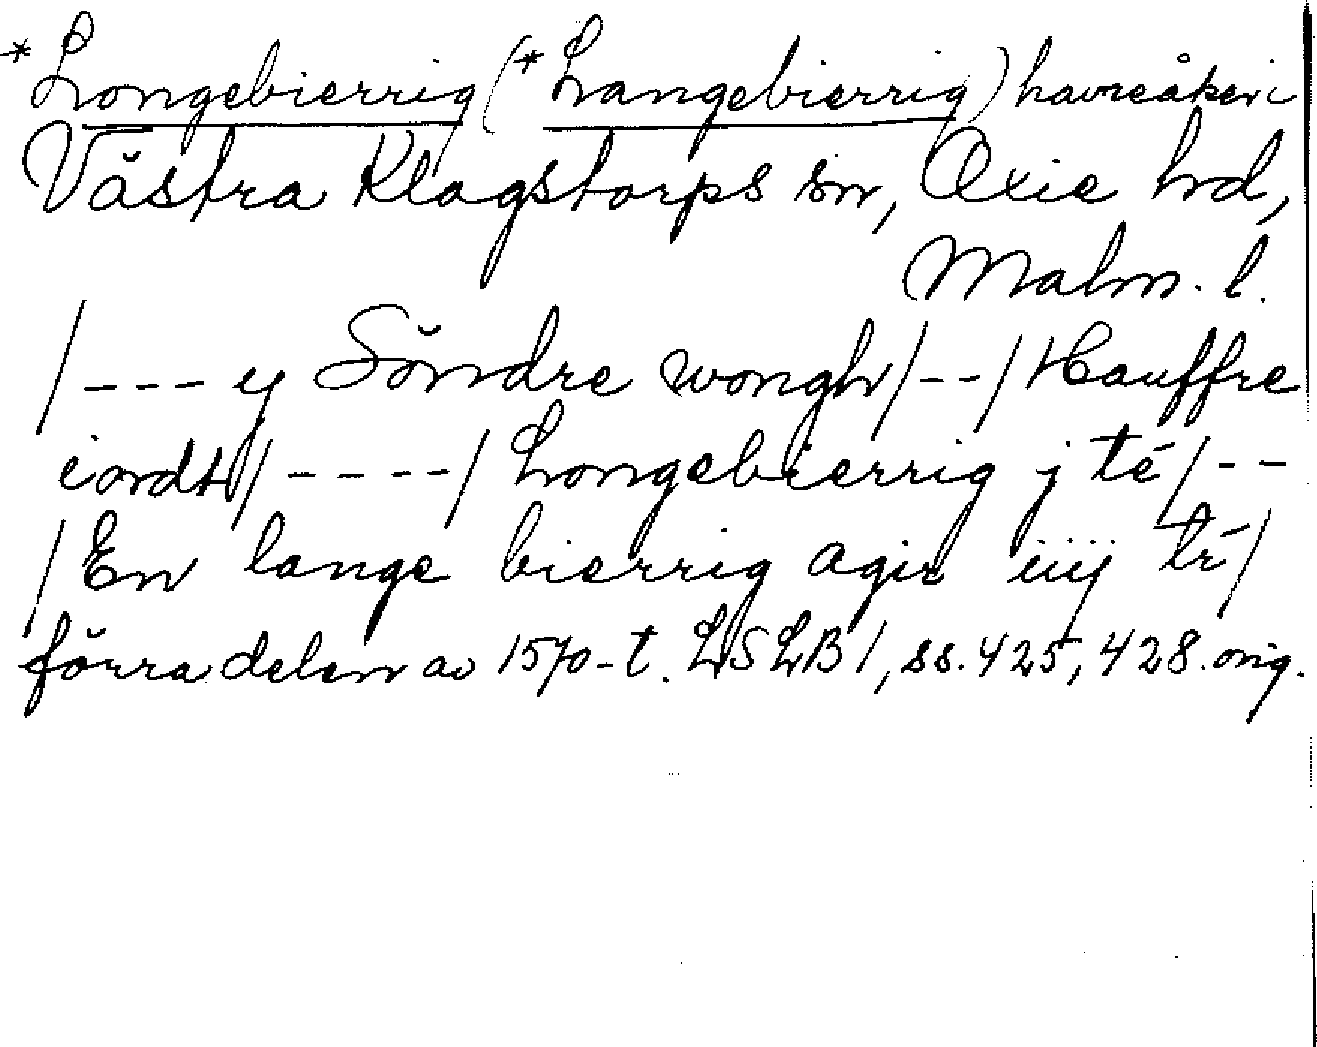 *Longebierrig (*Langebierrig) havreåker i
Västra Klagstorps sn, Oxie hd,
Malm. l.
/--- ej Söndre wongh/--/Hauffre
iordt/----/Longebierrig j té/--
/En lange bierrig agir iiij tr/
förra delen av 1570-t. LSLB 1, ss. 425, 428. orig.